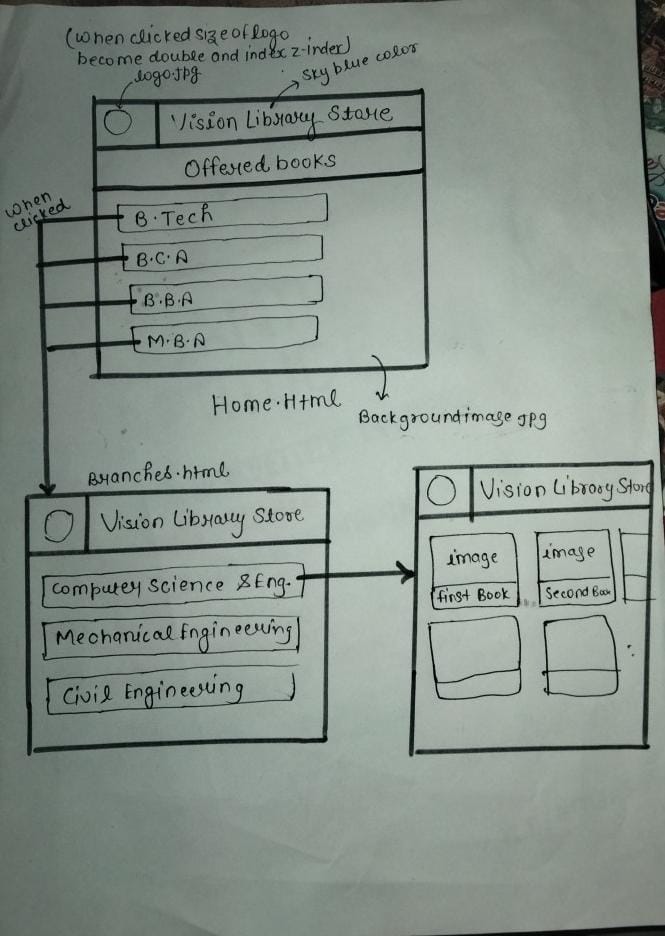 (when clicked size of logo
become double and index z-index)
logo.jpg
sky blue color
Vision Library Store
Offered books
when
clicked
B.Tech
B.C.A
B.B.A
M.B.A
Home.Html
Background image jpg
Branches.html
Vision Library Store
Computer Science & Eng.
Mechanical Engineering
Civil Engineering
Vision Library Store
image
image
first Book
Second Book